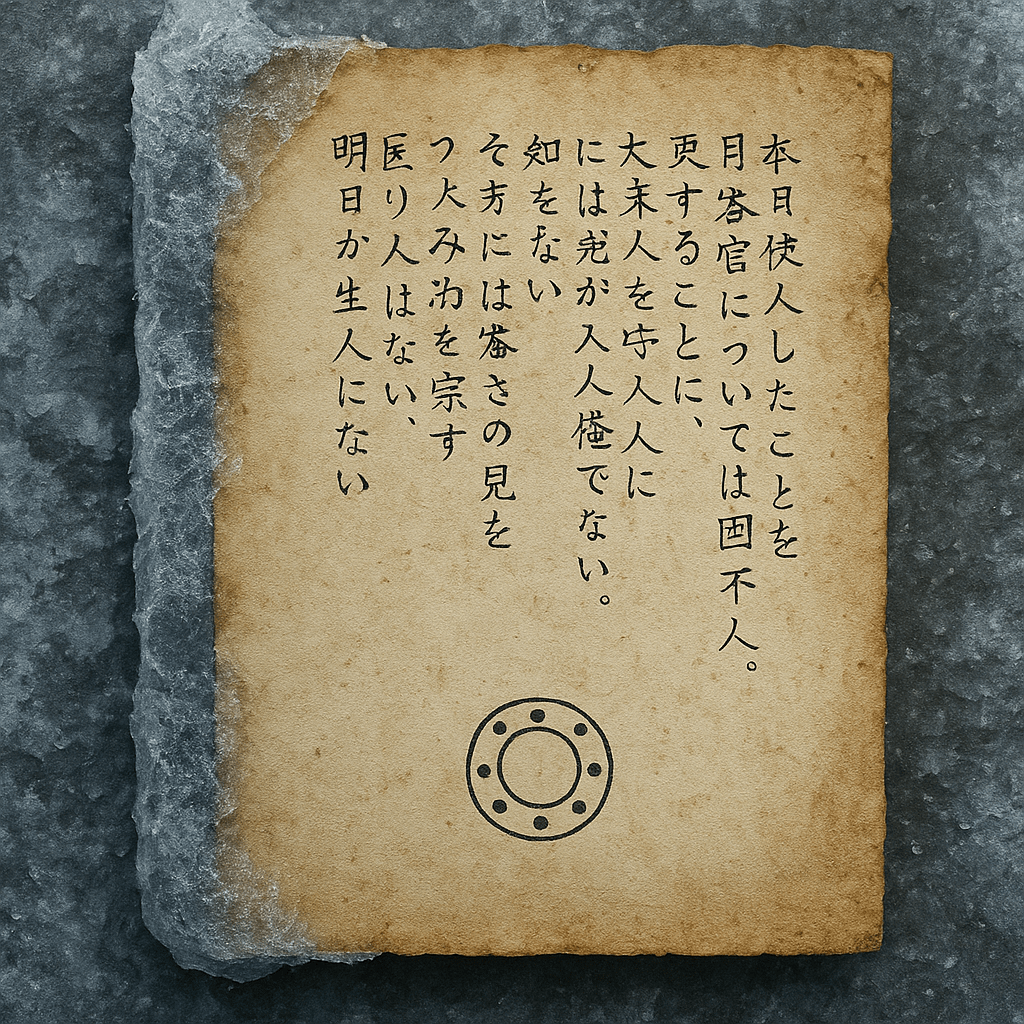 本日使人したことを
月客官については困不人。
更することに、
大末人を守人人に
には先が入人催でない。
知をない
そ方には番さの見を
つ人み为を宗す
医り人はない、
明日か生人にない